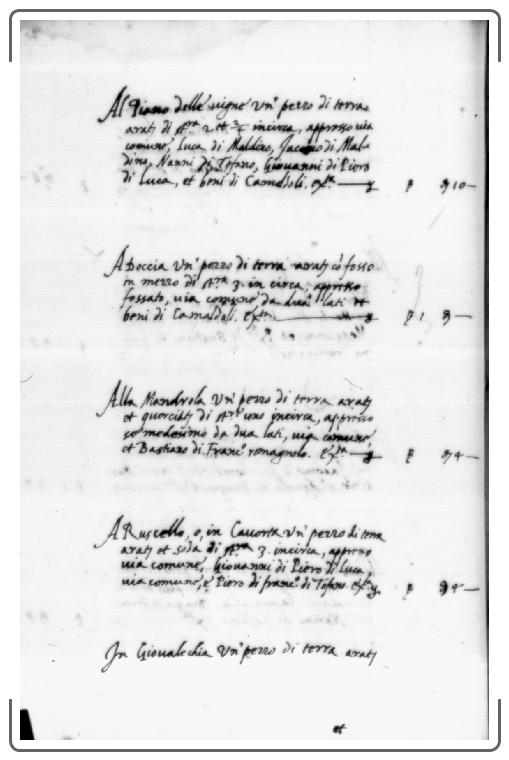 Al Piano delle vigne Un' pezzo di terra
arat; di st.ra 2 et 3/4 incirca, appresso via
comune, Luca di Maldino, Jacopo di Mal-
dino, Nanni di Tofano, Giovanni di Piero
di Luca, et beni di Camaldoli. ex.ta 10—
A Doccia Un' pezzo di terra arat; cō fosso
in mezzo di st.ra 3. in circa, appresso
fossato, via comune da dua lati et
beni di Camaldoli. ex.ta 1
Alla Mandrola Un' pezzo di terra arat;
et querciat; di st.ro uno incirca, appresso
se medesimo da dua lati, via comune,
et Bastiano di Franc.o romagnolo. ex.ta 4—
A Ruscello, o, in Cavorta Un' pezzo di terra
arat; et soda di st.ra 3. incirca, appresso
via comune, Giovanni di Piero di Luca,
via comune, e Piero di franc.o di Tofano. ex.ta 4—
In Giovalechia Un' pezzo di terra arat;
et